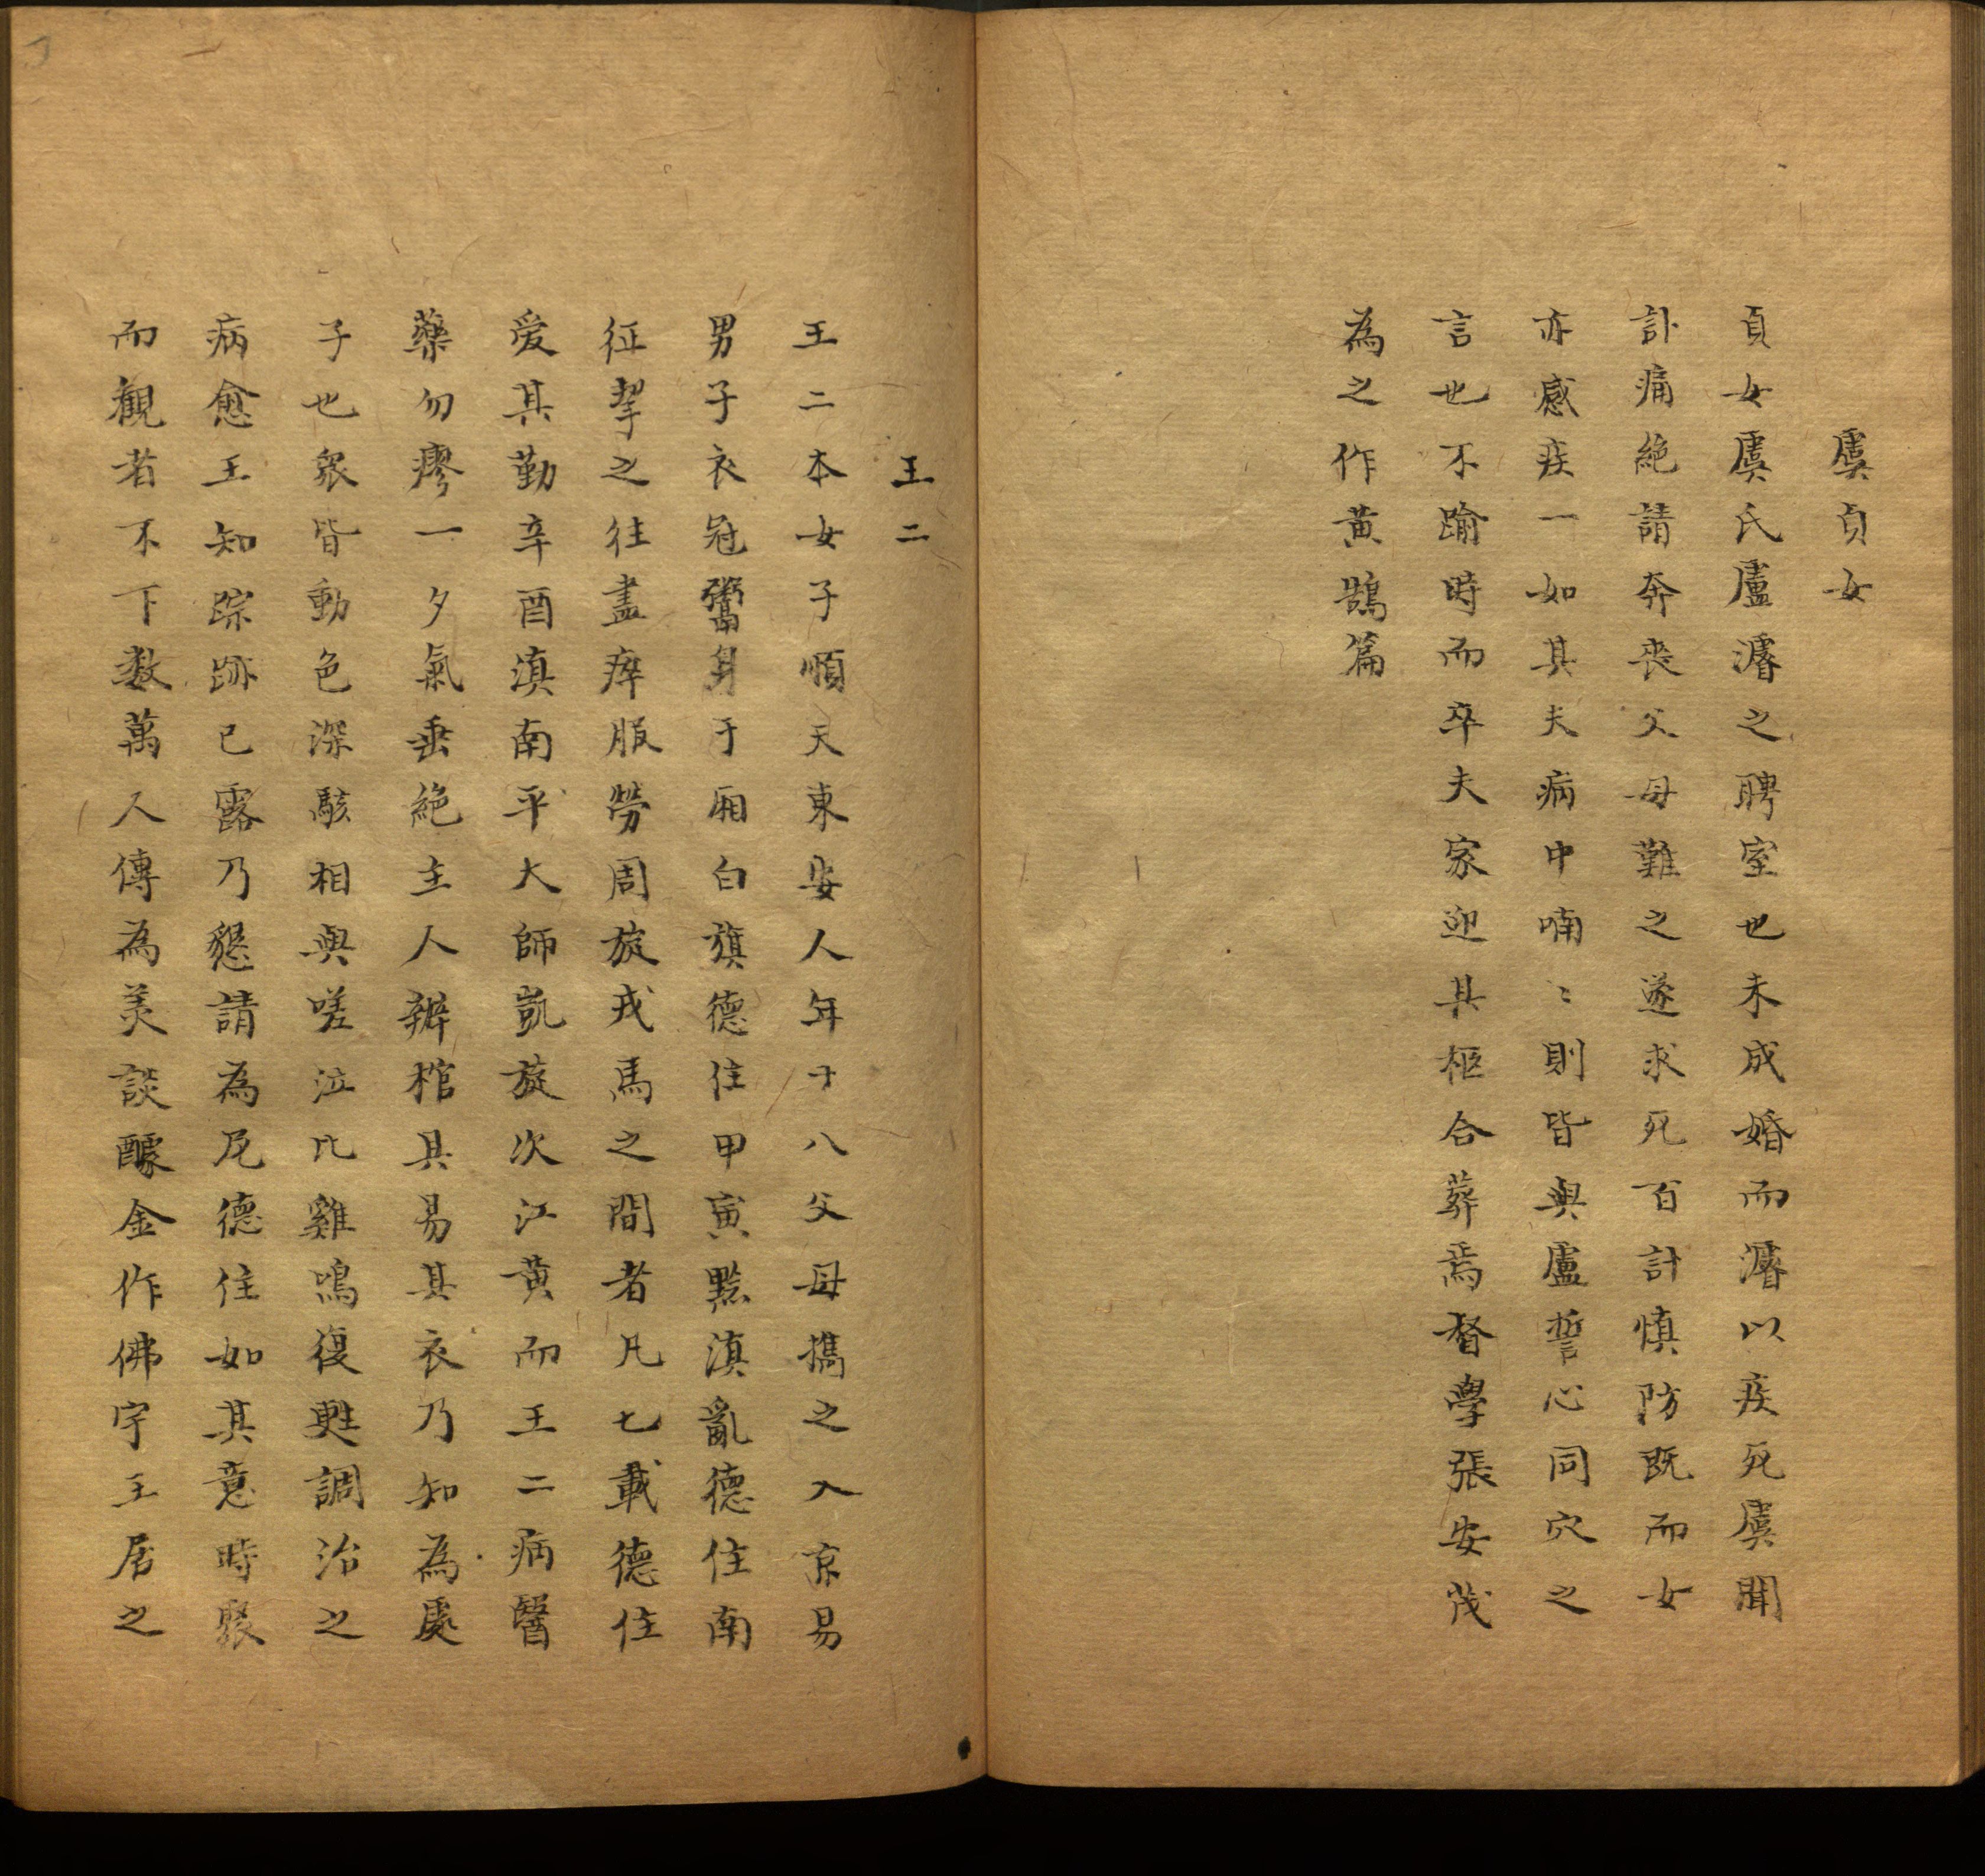 虞貞女
貞女虞氏盧濬之聘室也未成婚而濬以疾死虞聞
訃痛絶請奔喪父母難之遂求死百計慎防既而女
亦感疾一如其夫病中喃〻則皆與盧誓心同穴之
言也不踰時而卒夫家迎其柩合葬焉督學張安茂
為之作黄鵠篇
王二
王二本女子順天東安人年十八父母攜之入京易
男子衣冠鬻身于廂白旗德住甲寅黔滇亂德住南
征挈之往盡瘁服勞周旋戎馬之間者凡七載德住
爱其勤辛酉滇南平大師凱旋次江黄而王二病醫
藥勿瘳一夕氣垂絶主人辦棺具易其衣乃知為處
子也衆皆動色深駭相與嗟泣比雞鳴復甦調治之
病愈王知踪跡已露乃懇請為尼德住如其意時聚
而觀者不下数萬人傳為美談醵金作佛宇王居之